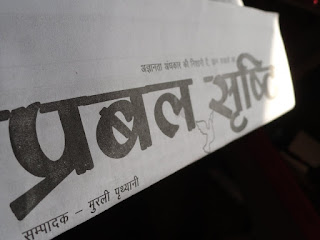 अज्ञानता अंधकार की निशानी है, ज्ञान प्रकाश का
प्रबल सृष्टि
सम्पादक – मुरली पृथ्यानी